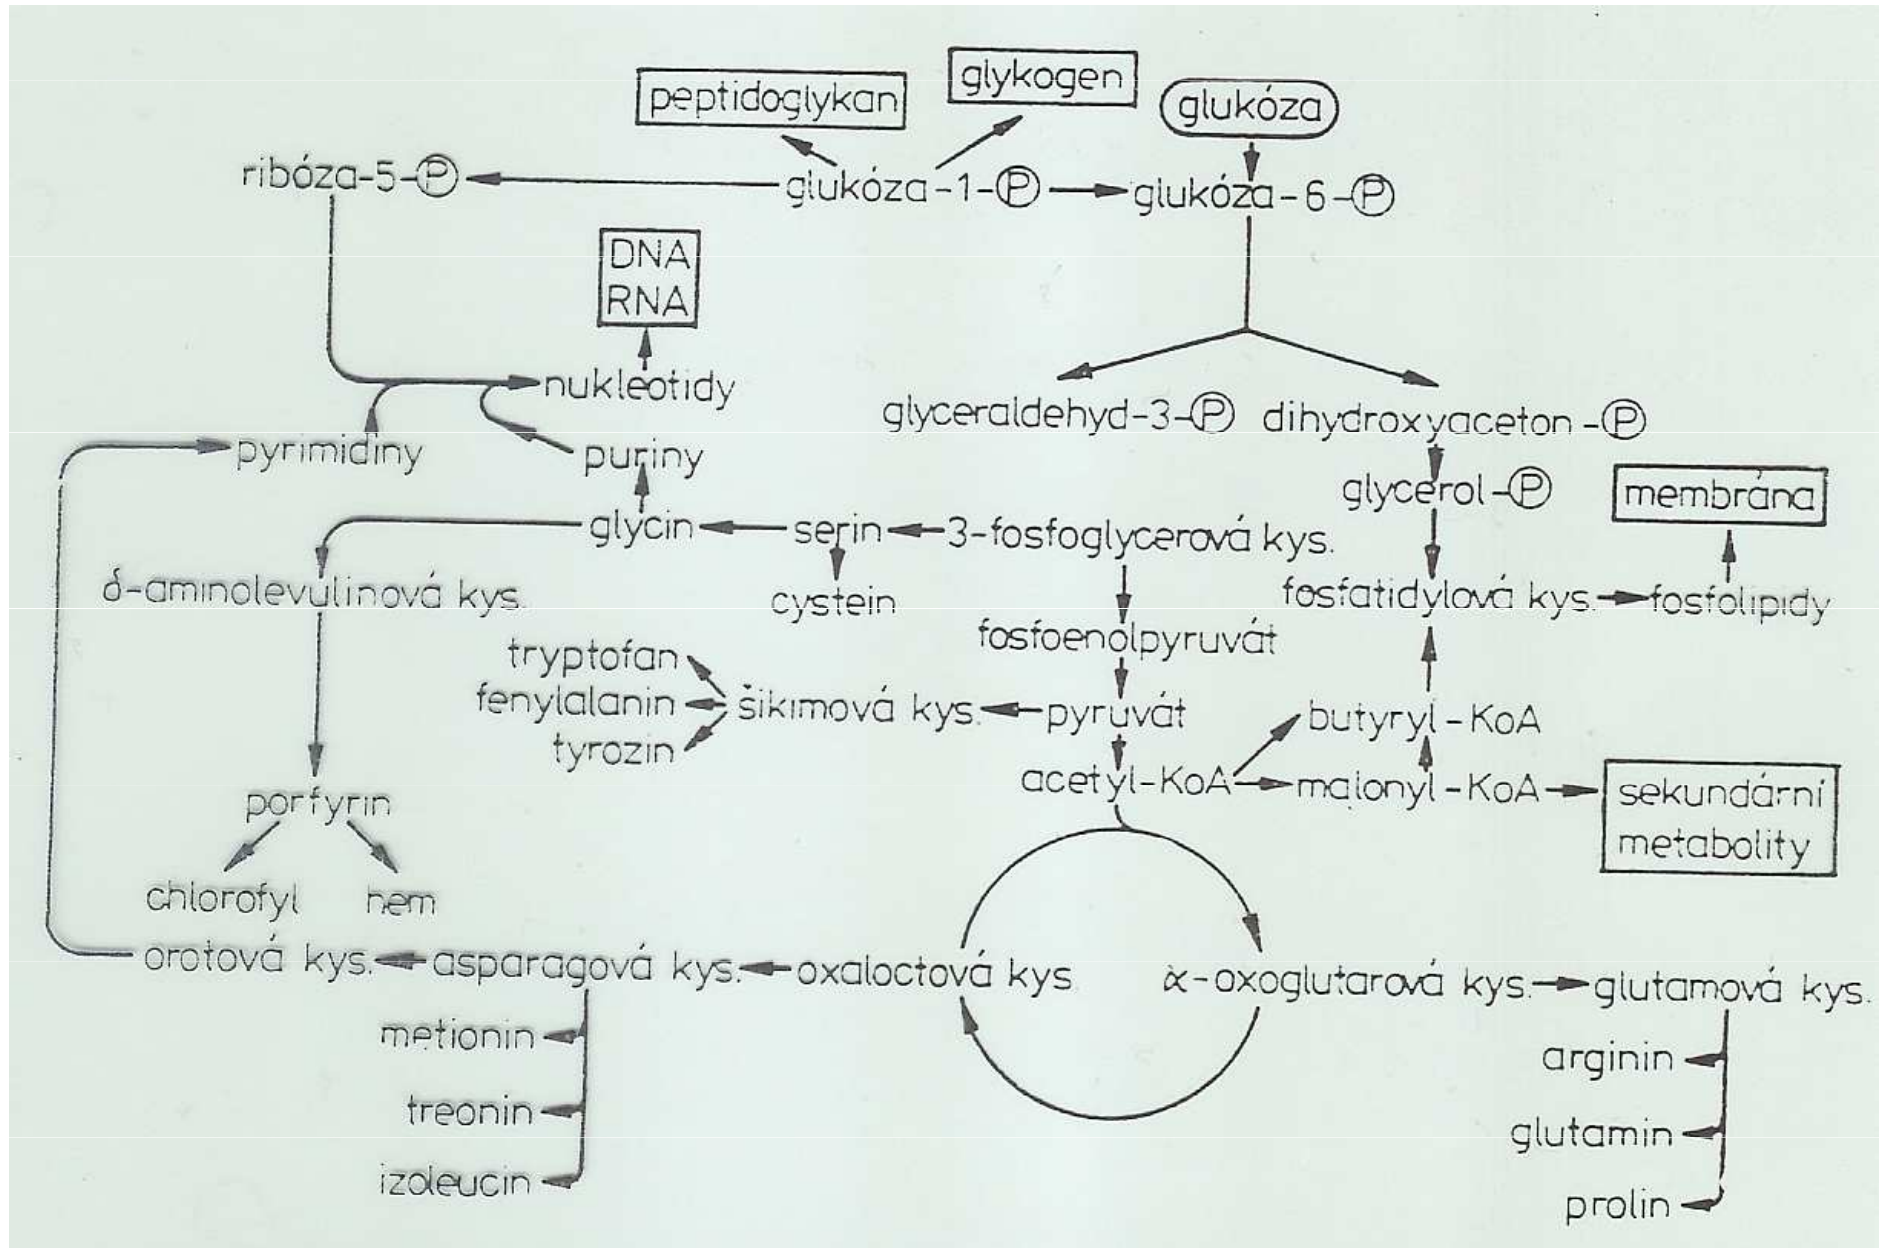 peptidoglykan
glykogen
glukóza
ribóza-5-P
glukóza-1-P
glukóza-6-P
DNA
RNA
nukleotidy
glyceraldehyd-3-P
dihydroxyaceton-P
pyrimidiny
puriny
glycerol-P
membrána
glycin
serin
3-fosfoglycerová kys.
δ-aminolevulinová kys.
cystein
fosfatidylová kys.
fosfolipidy
fosfoenolpyruvát
tryptofan
fenylalanin
tyrozin
šikimová kys.
pyruvát
butyryl-KoA
acetyl-KoA
malonyl-KoA
sekundární
metabolity
porfyrin
chlorofyl
hem
orotová kys.
asparagová kys.
oxaloctová kys
α-oxoglutarová kys.
glutamová kys.
metionin
treonin
izoleucin
arginin
glutamin
prolin